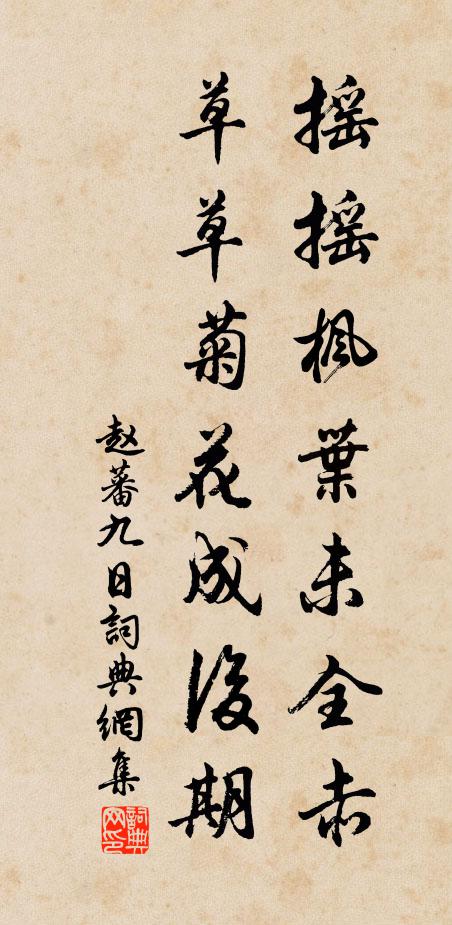 搖搖楓葉未全赤
草草菊花成後期
趙蕃九日詞典網集
詞典
网印